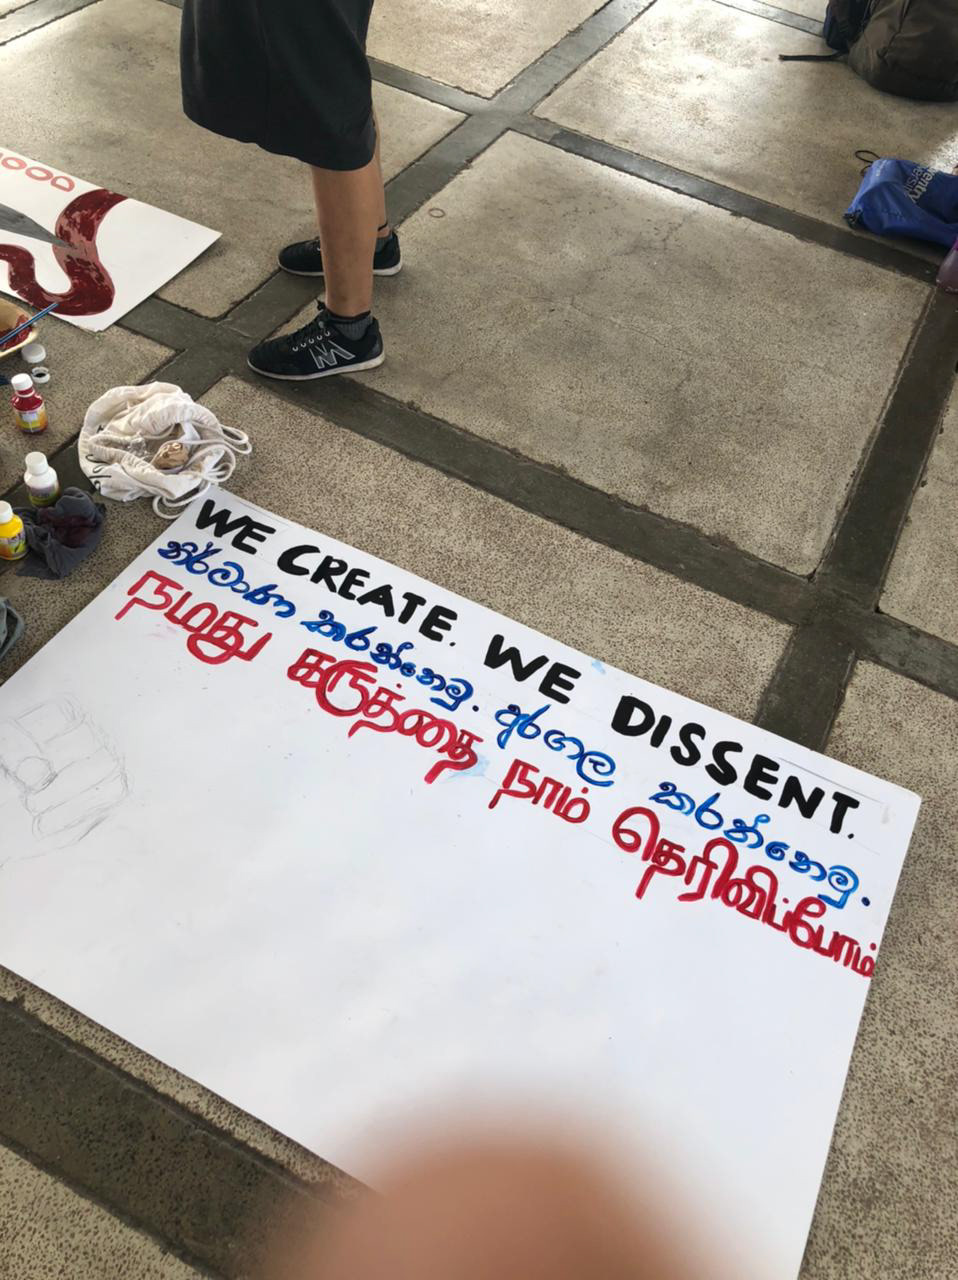 WE CREATE. WE DISSENT.
නිර්මාණ කරන්නෙමු. අරගල කරන්නෙමු.
நமது கருத்தை நாம் தெரிவிப்போம்